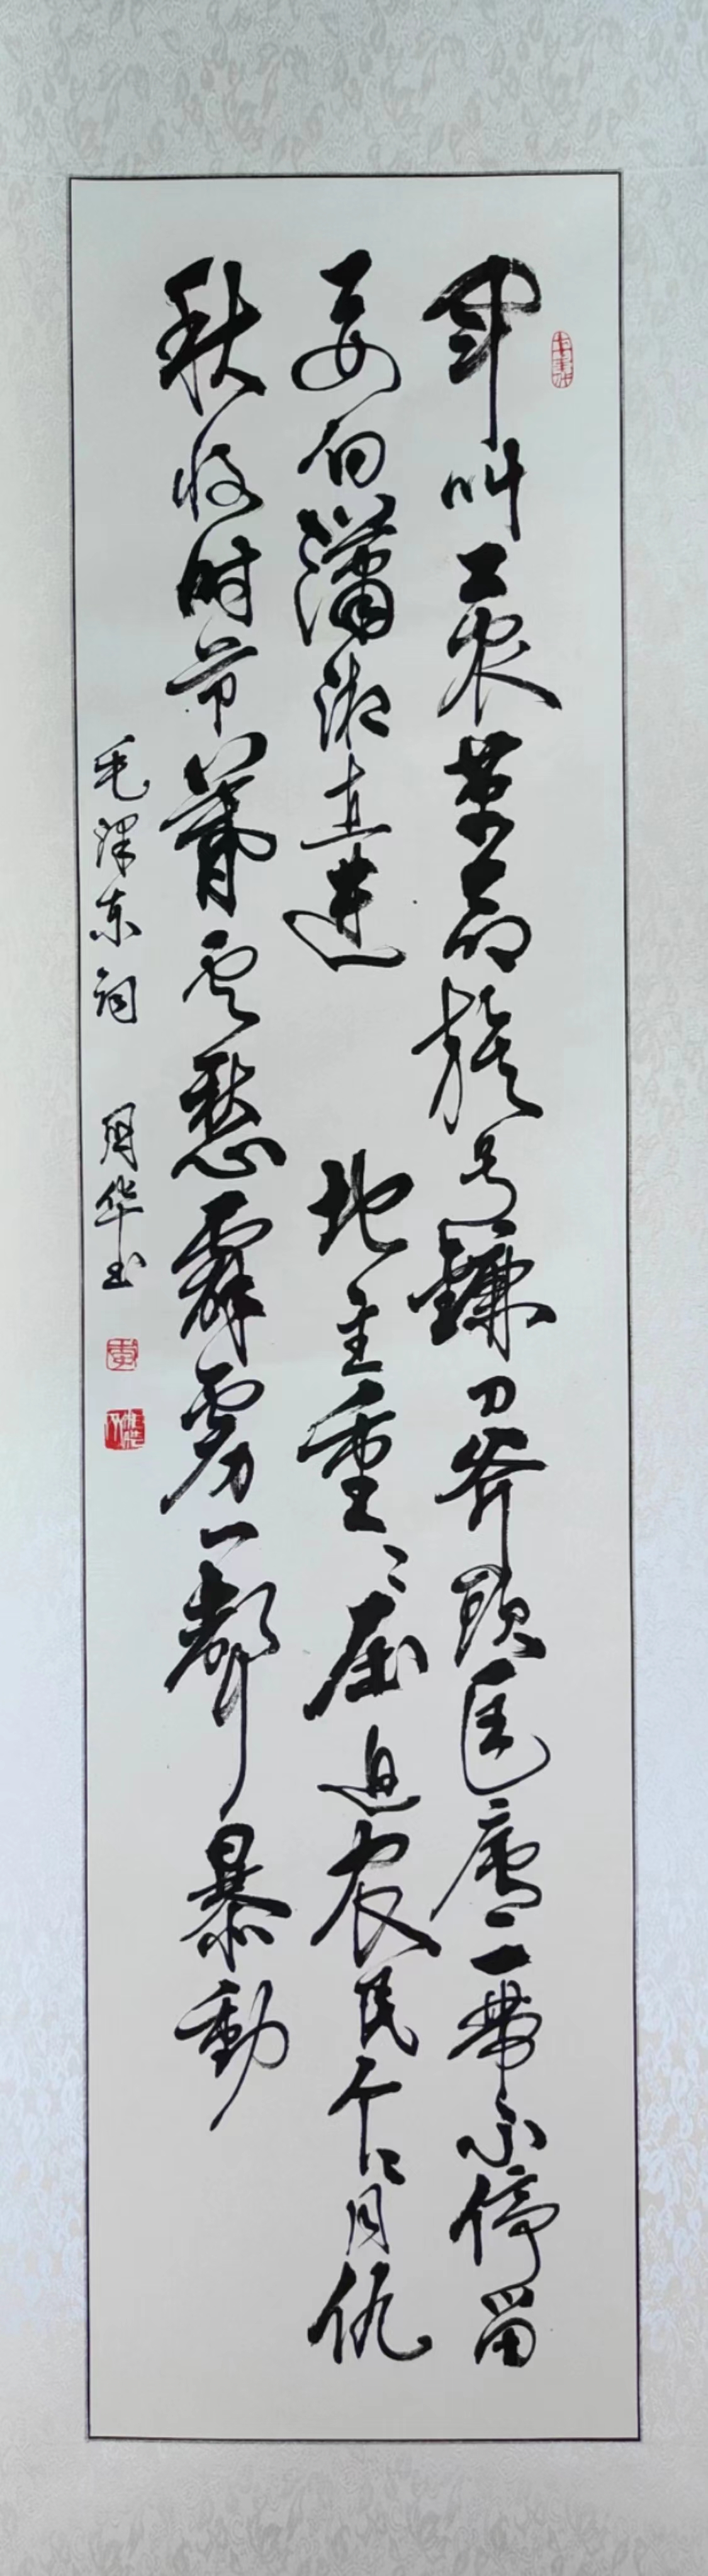 军叫工农革命旗号鐮刀斧頭匡廬一帶不停留
要向瀟湘直進 地主重々压迫农民个々同仇
秋收时节暮云愁霹雳一聲暴動
毛泽东词 周华书